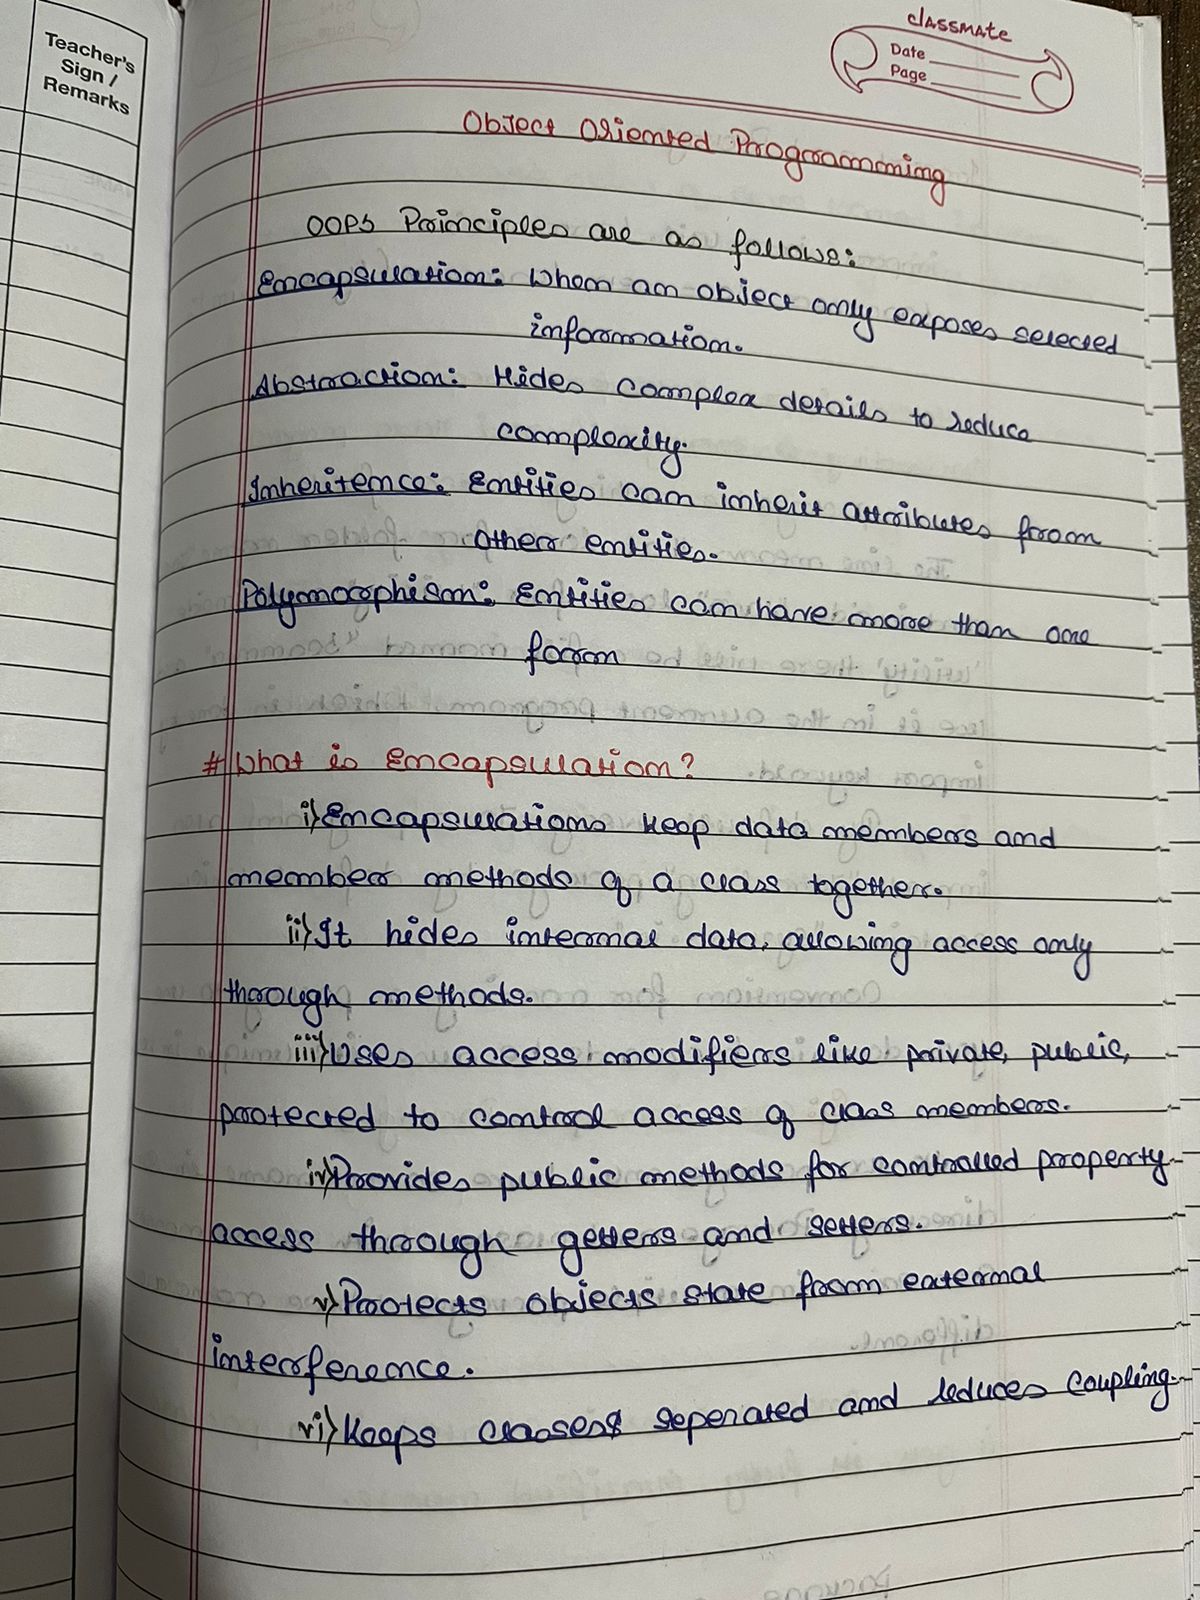 Teacher's
Sign /
Remarks
classmate
Date
Page
Object Oriented Programming
OOPS Principles are as follows:
Encapsulation: When an object only exposes selected
information.
Abstraction: Hides complex details to reduce
complexity.
Inheritence: Entities can inherit attributes from
other entities.
Polymorphism: Entities can have more than one
form
# What is Encapsulation?
i) Encapsulations keep data members and
member methods of a class together.
ii) It hides internal data, allowing access only
through methods.
iii) Uses access modifiers like private, public,
protected to control access of class members.
iv) Provides public methods for controlled property
access through getters and setters.
v) Protects objects state from external
interference.
vi) Keeps classes seperated and reduces coupling.